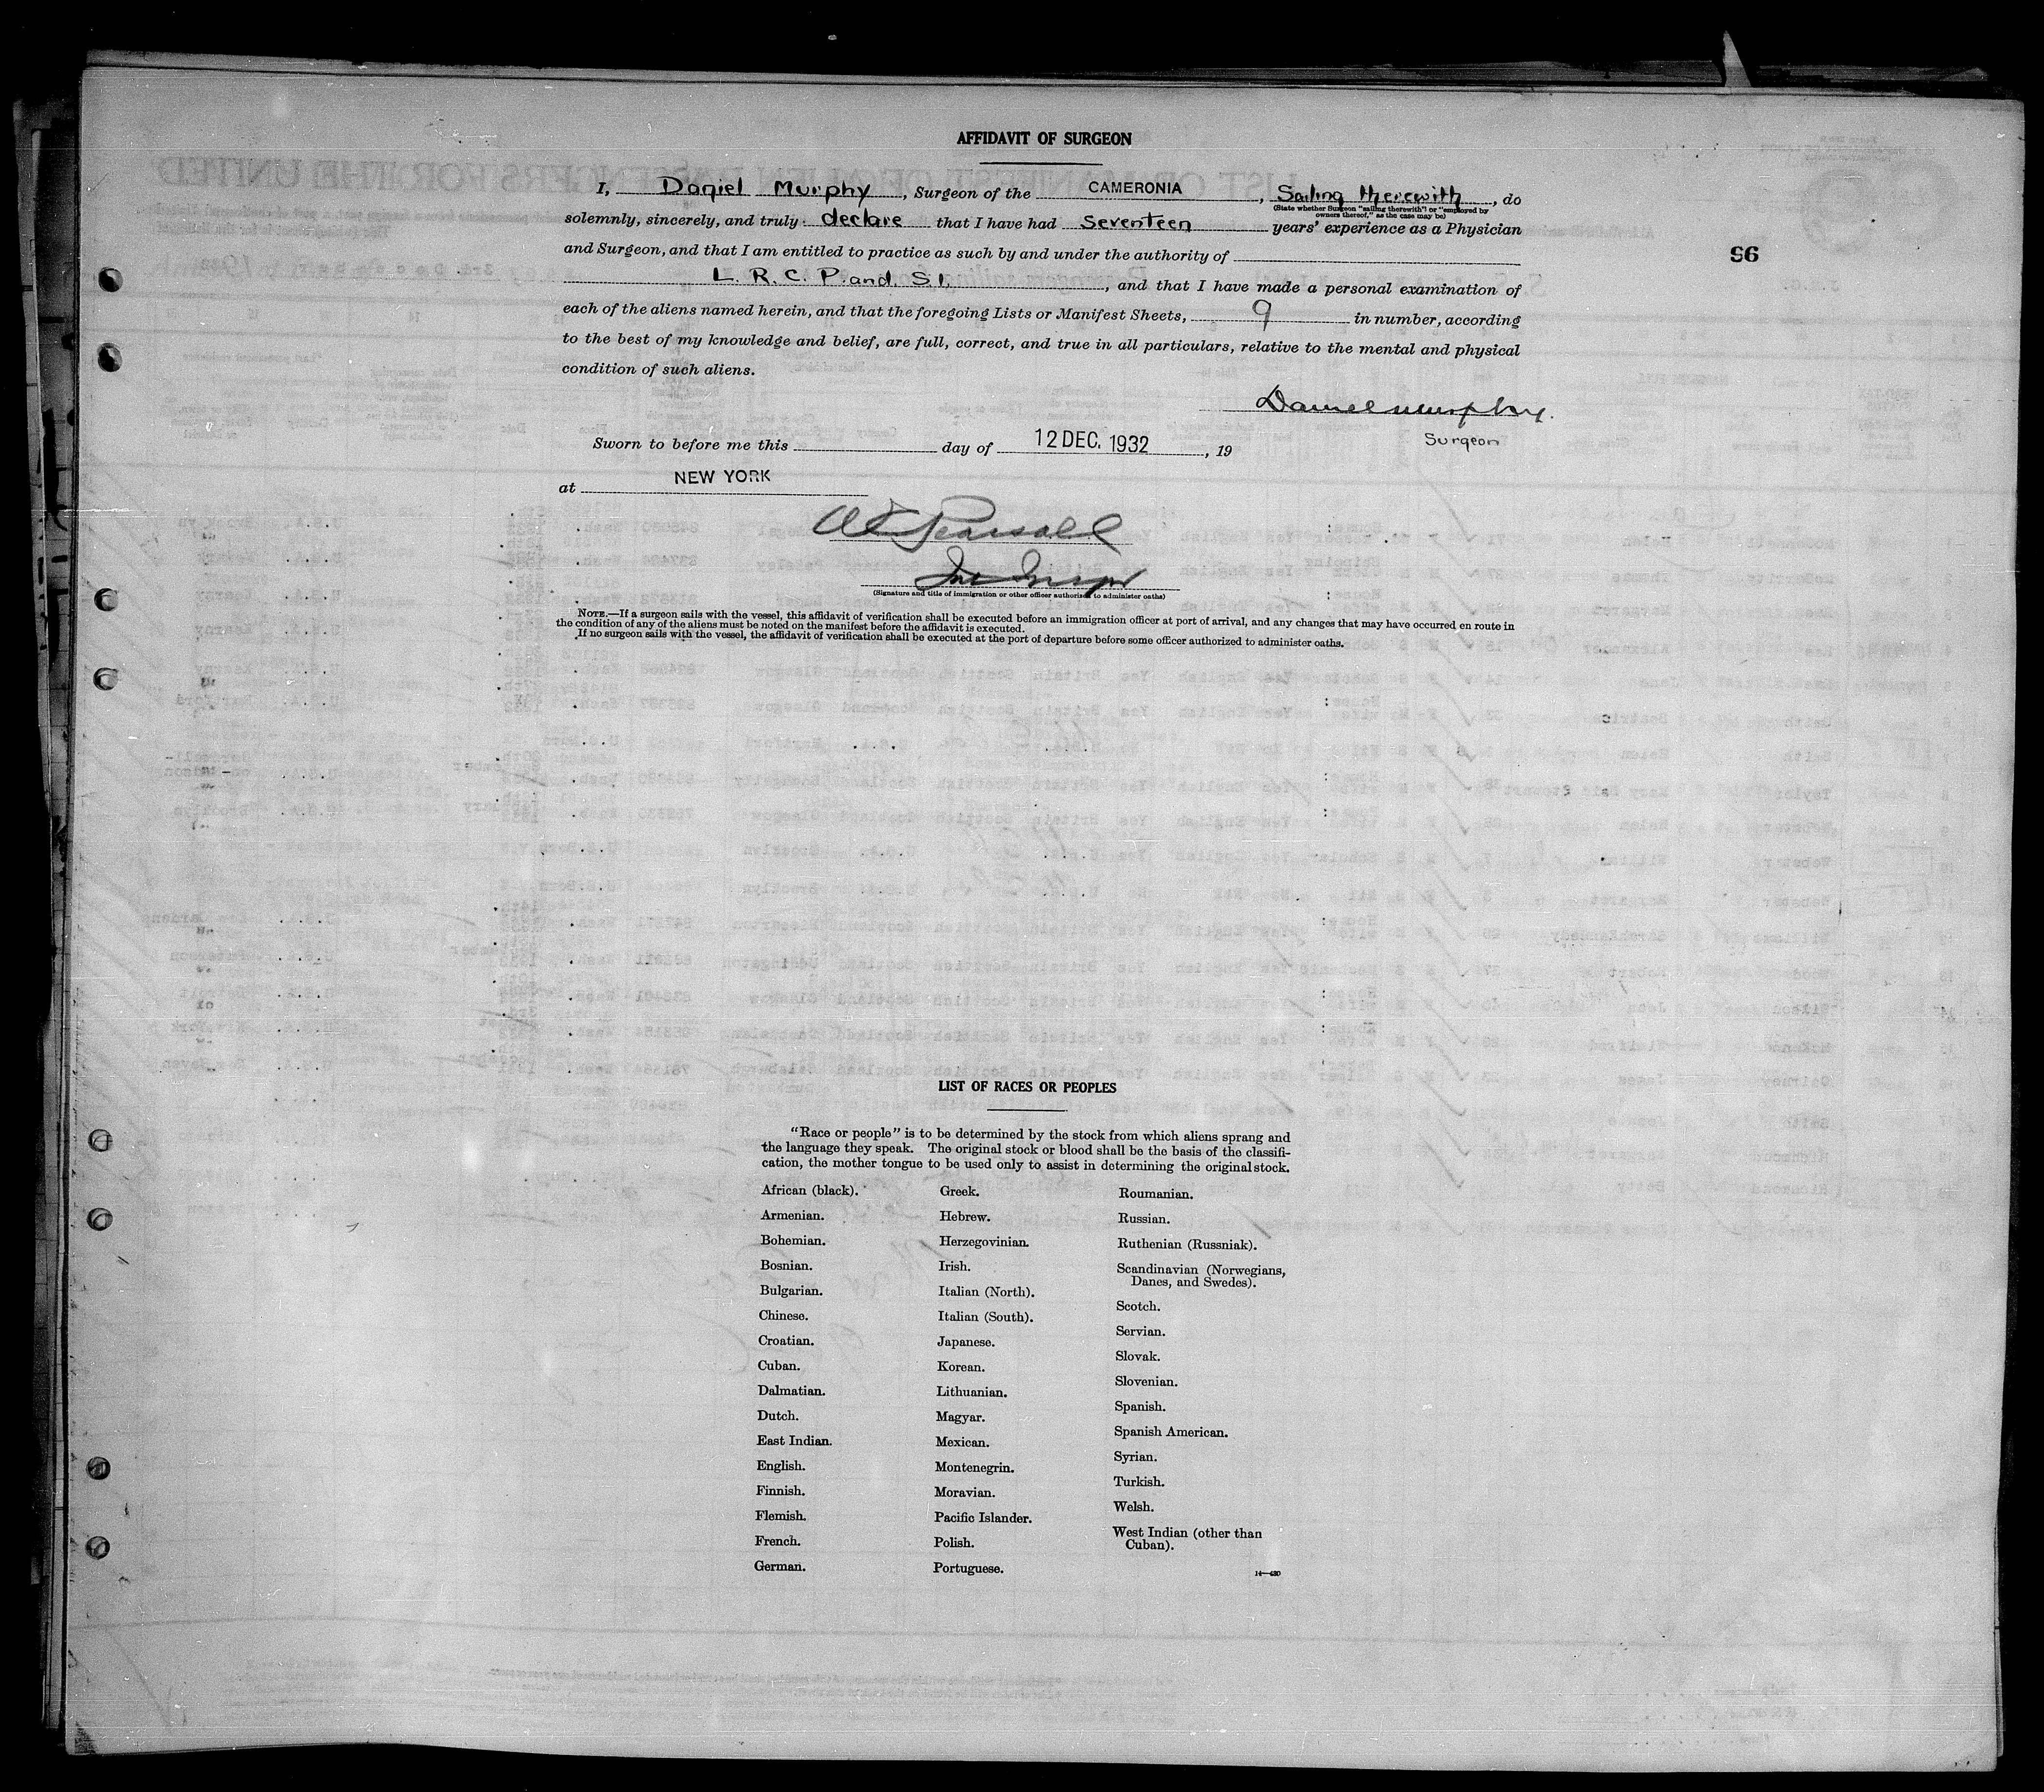 AFFIDAVIT OF SURGEON
I, Daniel Murphy, Surgeon of the CAMERONIA, Sailing therewith, do
(State whether Surgeon "sailing therewith" or "employed by
owners thereof," as the case may be)
solemnly, sincerely, and truly declare that I have had seventeen years' experience as a Physician
and Surgeon, and that I am entitled to practice as such by and under the authority of
L. R. C. P. and. S I., and that I have made a personal examination of
each of the aliens named herein, and that the foregoing Lists or Manifest Sheets, 9 in number, according
to the best of my knowledge and belief, are full, correct, and true in all particulars, relative to the mental and physical
condition of such aliens.
Daniel Murphy.
Surgeon
Sworn to before me this day of 12 DEC. 1932, 19
at NEW YORK
Pearsall
(Signature and title of immigration or other officer authorized to administer oaths)
NOTE.—If a surgeon sails with the vessel, this affidavit of verification shall be executed before an immigration officer at port of arrival, and any changes that may have occurred en route in
the condition of any of the aliens must be noted on the manifest before the affidavit is executed.
If no surgeon sails with the vessel, the affidavit of verification shall be executed at the port of departure before some officer authorized to administer oaths.
96
LIST OF RACES OR PEOPLES
"Race or people" is to be determined by the stock from which aliens sprang and
the language they speak. The original stock or blood shall be the basis of the classifi-
cation, the mother tongue to be used only to assist in determining the original stock.
African (black).
Armenian.
Bohemian.
Bosnian.
Bulgarian.
Chinese.
Croatian.
Cuban.
Dalmatian.
Dutch.
East Indian.
English.
Finnish.
Flemish.
French.
German.
Greek.
Hebrew.
Herzegovinian.
Irish.
Italian (North).
Italian (South).
Japanese.
Korean.
Lithuanian.
Magyar.
Mexican.
Montenegrin.
Moravian.
Pacific Islander.
Polish.
Portuguese.
Roumanian.
Russian.
Ruthenian (Russniak).
Scandinavian (Norwegians,
Danes, and Swedes).
Scotch.
Servian.
Slovak.
Slovenian.
Spanish.
Spanish American.
Syrian.
Turkish.
Welsh.
West Indian (other than
Cuban).
14—430